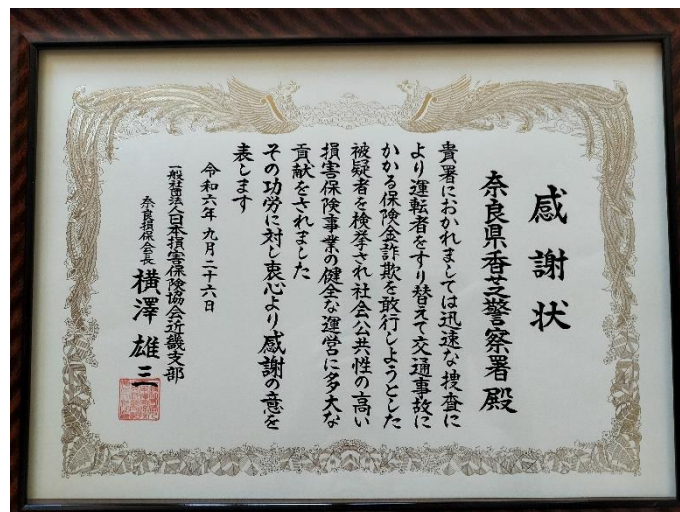 感謝状
奈良県香芝警察署 殿
貴署におかれましては迅速な捜査に
より運転者をすり替えて交通事故に
かかる保険金詐欺を敢行しようとした
被疑者を検挙され社会公共性の高い
損害保険事業の健全な運営に多大な
貢献をされました
その功労に対し衷心より感謝の意を
表します
令和六年九月二十六日
一般社団法人日本損害保険協会近畿支部
奈良損保会長 横澤雄三